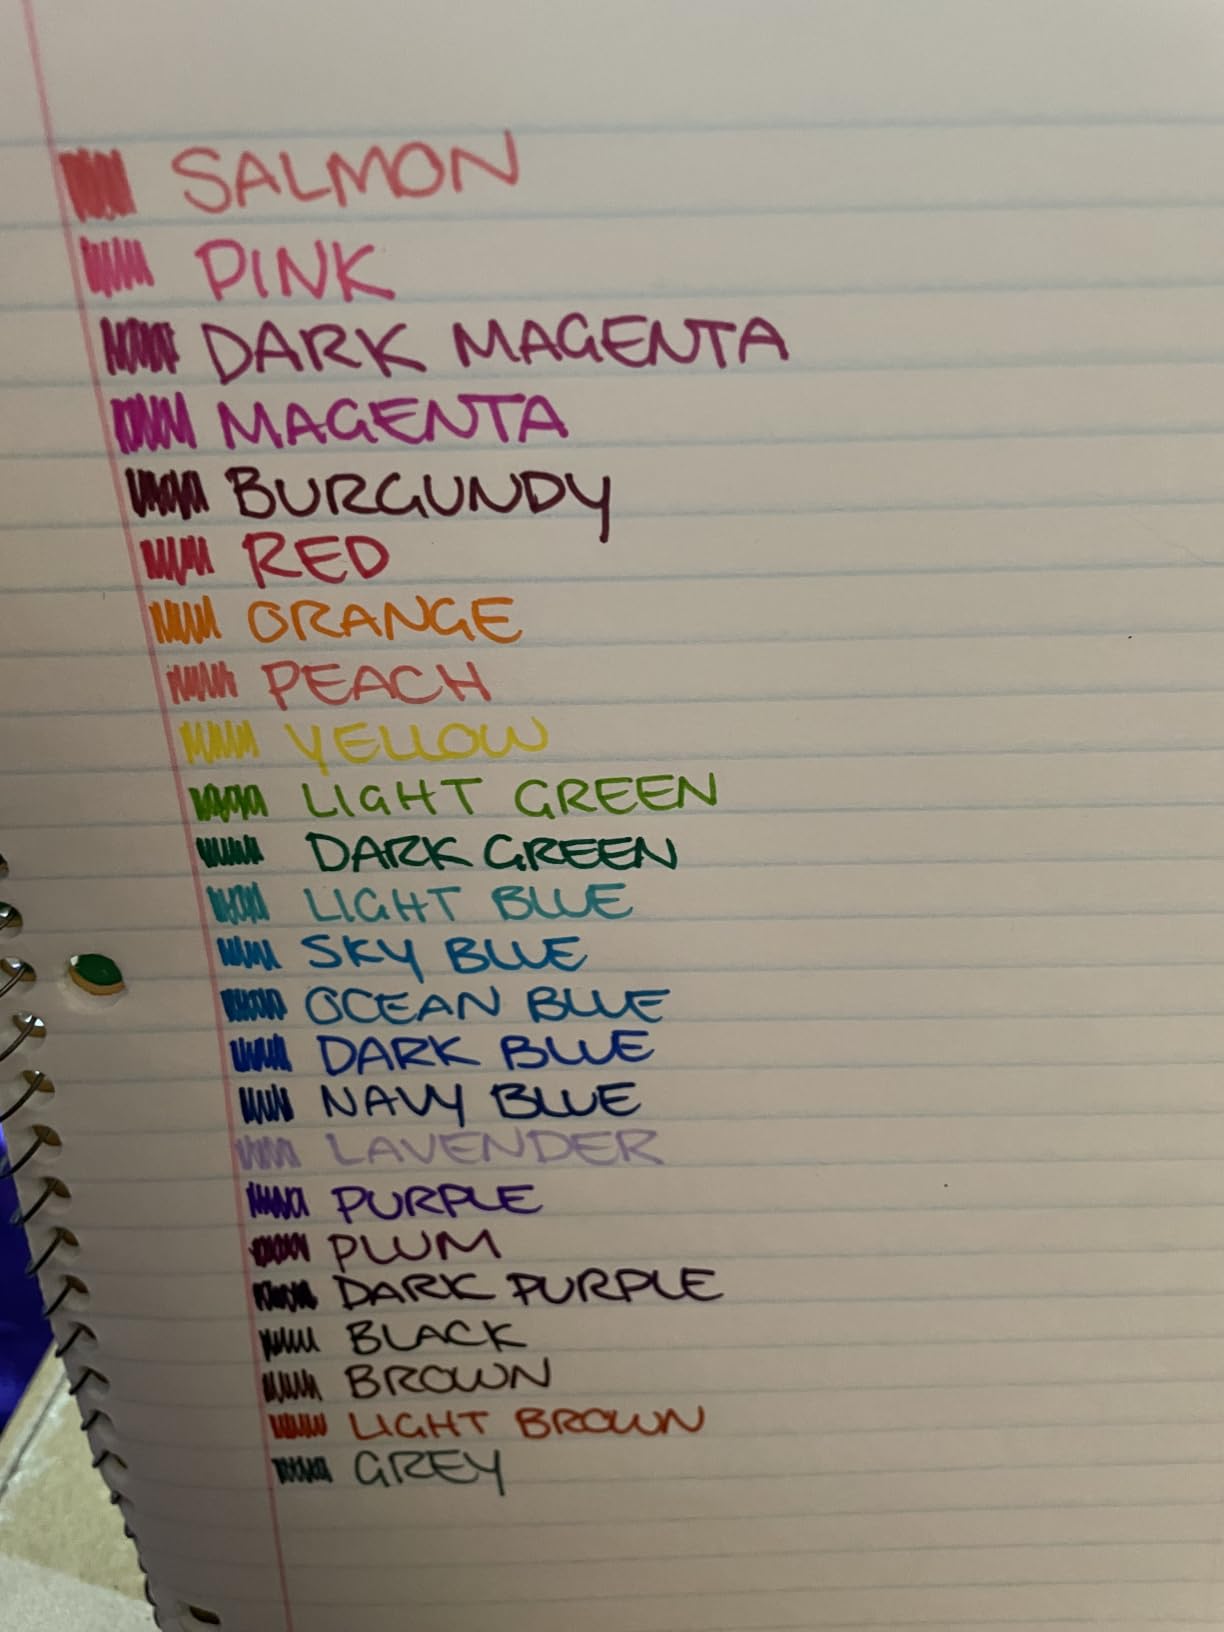 SALMON
PINK
DARK MAGENTA
MAGENTA
BURGUNDY
RED
ORANGE
PEACH
YELLOW
LIGHT GREEN
DARK GREEN
LIGHT BLUE
SKY BLUE
OCEAN BLUE
DARK BLUE
NAVY BLUE
LAVENDER
PURPLE
PLUM
DARK PURPLE
BLACK
BROWN
LIGHT BROWN
GREY